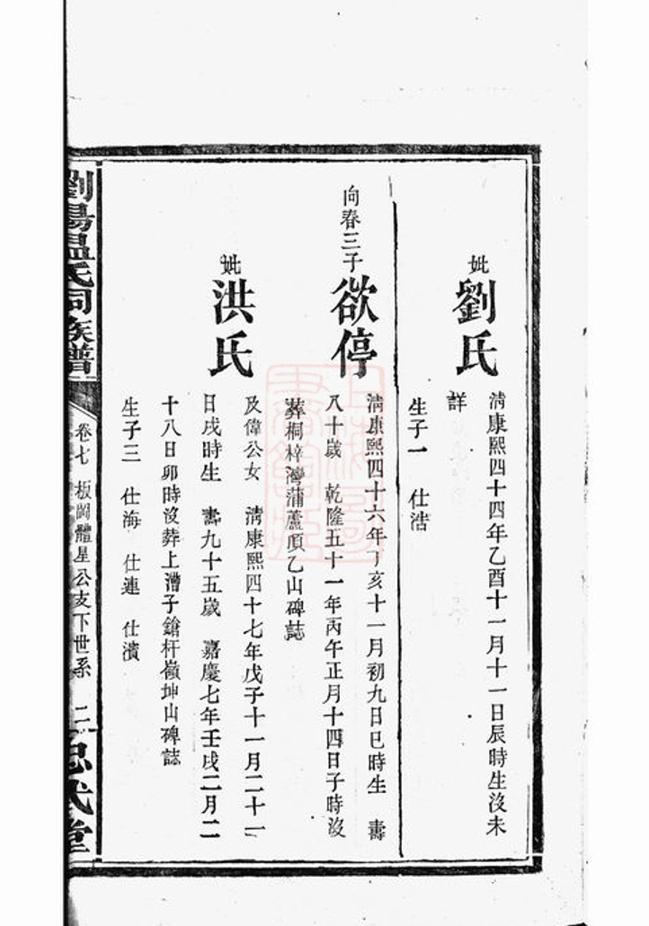 妣
劉氏
清康熙四十四年乙酉十一月十一日辰時生沒未
詳
生子一 仕浩
向春三子
欲停
清康熙四十六年丁亥十一月初九日巳時生 壽
八十歲 乾隆五十一年丙午正月十四日子時沒
葬桐梓灣蒲蘆頂乙山碑誌
妣
洪氏
及偉公女 清康熙四十七年戊子十一月二十一
日戌時生 壽九十五歲 嘉慶七年壬戌二月二
十八日卯時沒葬上漕子鎗杆嶺坤山碑誌
生子三 仕海 仕連 仕濱
劉昜温氏同族譜
卷七 板岡體星公支下世系 二
忠武堂